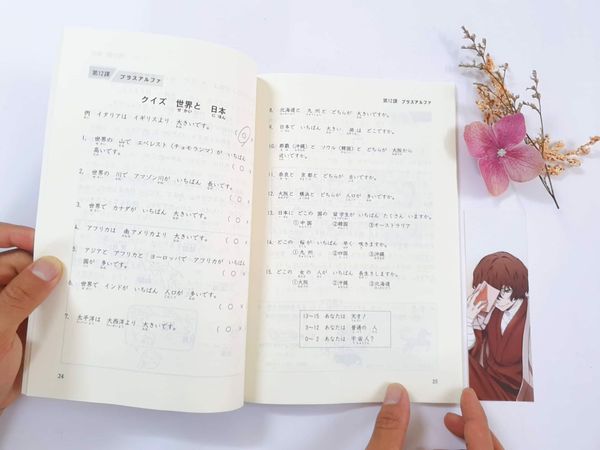 第12課 プラスアルファ
クイズ 世界と 日本
せかい にほん
例 イタリアは イギリスより 大きいです。
(○)
1. 世界の 山で エベレスト（チョモランマ）が いちばん
高いです。 (○ )
2. 世界の 川で アマゾン川が いちばん 長いです。
(○ )
3. 世界で カナダが いちばん 大きいです。
(○ )
4. アフリカは 南アメリカより 大きいです。
(○ )
5. アジアと アフリカと ヨーロッパで アフリカが いちばん
国が 多いです。 (○ )
6. 世界で インドが いちばん 人口が 多いです。
(○ )
7. 太平洋は 大西洋より 大きいです。 (○ )
24
第12課 プラスアルファ
8. 北海道と 九州と どちらが 大きいですか。
9. 日本で いちばん 大きい 島は どこですか。
10. 那覇（沖縄）と ソウル（韓国）と どちらが 大阪から
近いですか。
11. 奈良と 京都と どちらが 古いですか。
12. 大阪と 横浜と どちらが 人口が 多いですか。
13. 日本に どこの 国の 留学生が いちばん たくさん いますか。
①中国 ②韓国 ③オーストラリア
14. どこの 桜が いちばん 早く 咲きますか。
①九州 ②中国 ③沖縄
15. どこの 女の 人が いちばん 長生きしますか。
①大阪 ②沖縄 ③北海道
13～15 あなたは 天才！
3～12 あなたは 普通の 人
0～2 あなたは 宇宙人？
25